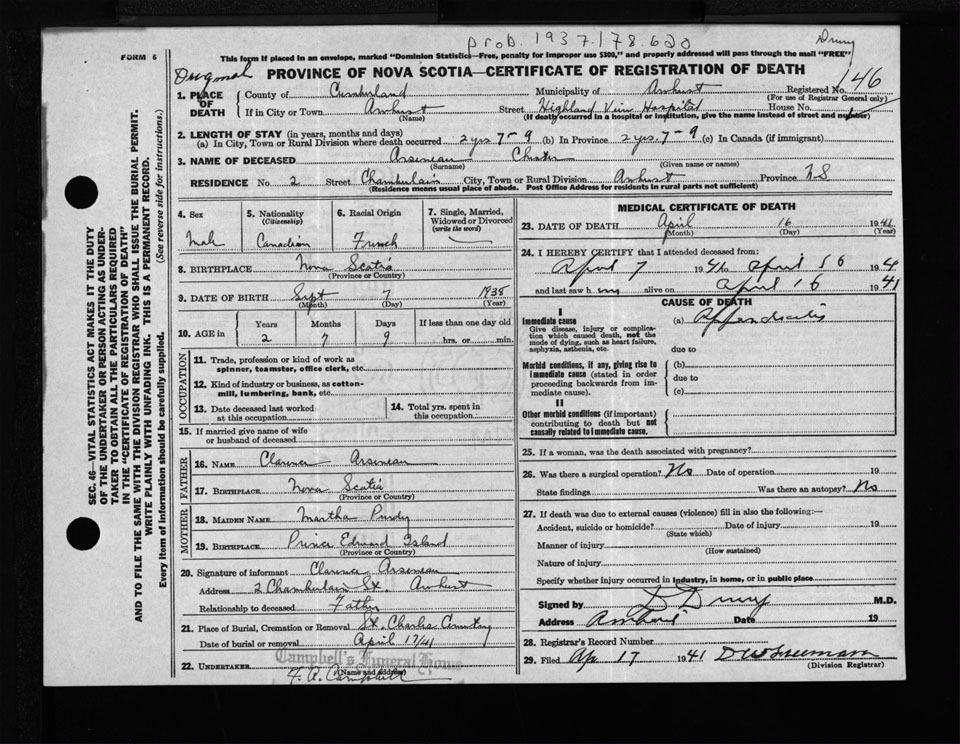 prob. 1937.178.620
Drury
FORM 6
This form if placed in an envelope, marked "Dominion Statistics—Free, penalty for improper use $300," and properly addressed will pass through the mail "FREE"
PROVINCE OF NOVA SCOTIA—CERTIFICATE OF REGISTRATION OF DEATH
1. PLACE OF DEATH
County of Cumberland Municipality of Amherst Registered No. 146
(For use of Registrar General only)
If in City or Town Amherst Street Highland View Hospital House No.
(Name) (If death occurred in a hospital or institution, give the name instead of street and number)
2. LENGTH OF STAY (in years, months and days)
(a) In City, Town or Rural Division where death occurred 2 yrs. 7 - 9 (b) In Province 2 yrs. 7 - 9 (c) In Canada (if immigrant)
3. NAME OF DECEASED Arseneau Chester
(Surname) (Given name or names)
RESIDENCE No. 2 Street Chamberlain City, Town or Rural Division Amherst Province N.S
(Residence means usual place of abode. Post Office Address for residents in rural parts not sufficient)
4. Sex
Male
5. Nationality
(Citizenship)
Canadian
6. Racial Origin
French
7. Single, Married, Widowed or Divorced
(write the word)
8. BIRTHPLACE Nova Scotia
(Province or Country)
9. DATE OF BIRTH Sept 7 1938
(Month) (Day) (Year)
10. AGE in Years Months Days If less than one day old
2 7 9 hrs. or min.
OCCUPATION
11. Trade, profession or kind of work as
spinner, teamster, office clerk, etc.
12. Kind of industry or business, as cotton-
mill, lumbering, bank, etc.
13. Date deceased last worked
at this occupation
14. Total yrs. spent in
this occupation
15. If married give name of wife
or husband of deceased
FATHER
16. NAME Clarence Arseneau
17. BIRTHPLACE Nova Scotia
(Province or Country)
MOTHER
18. MAIDEN NAME Martha Purdy
19. BIRTHPLACE Prince Edward Island
(Province or Country)
20. Signature of informant Clarence Arseneau
Address 2 Chamberlain St. Amherst
Relationship to deceased Father
21. Place of Burial, Cremation or Removal St. Charles Cemetery
Date of burial or removal April 17/41
Campbell's Funeral Home
22. UNDERTAKER F. A. Campbell
(Name and Address)
MEDICAL CERTIFICATE OF DEATH
23. DATE OF DEATH April 16 1941
(Month) (Day) (Year)
24. I HEREBY CERTIFY that I attended deceased from:
April 7 1941 to April 16 194
and last saw h im alive on April 16 1941
CAUSE OF DEATH
I
Immediate cause (a) Appendicitis
Give disease, injury or complica-
tion which caused death, not the
mode of dying, such as heart failure,
asphyxia, asthenia, etc.
due to
Morbid conditions, if any, giving rise to
immediate cause (stated in order
proceeding backwards from im-
mediate cause).
(b)
due to
(c)
II
Other morbid conditions (if important)
contributing to death but not
causally related to immediate cause.
25. If a woman, was the death associated with pregnancy?
26. Was there a surgical operation? No Date of operation 19
State findings Was there an autopsy? No
27. If death was due to external causes (violence) fill in also the following:—
Accident, suicide or homicide? Date of injury 19
(State which)
Manner of injury
(How sustained)
Nature of injury
Specify whether injury occurred in industry, in home, or in public place
Signed by D Drury M.D.
Address Amherst Date 19
28. Registrar's Record Number
29. Filed Ap 17 1941
(Division Registrar)
SEC. 46—VITAL STATISTICS ACT MAKES IT THE DUTY
OF THE UNDERTAKER OR PERSON ACTING AS UNDER-
TAKER TO OBTAIN ALL THE PARTICULARS REQUIRED
IN THE "CERTIFICATE OF REGISTRATION OF DEATH"
AND TO FILE THE SAME WITH THE DIVISION REGISTRAR WHO SHALL ISSUE THE BURIAL PERMIT.
WRITE PLAINLY WITH UNFADING INK. THIS IS A PERMANENT RECORD.
Every item of information should be carefully supplied. (See reverse side for instructions.)